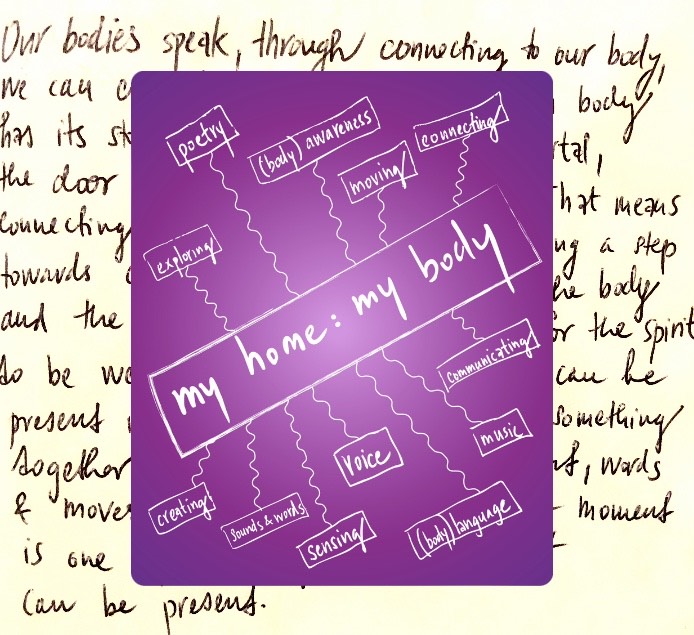 Our bodies speak, through connecting to our body,
we can body
has its
the door that means
connecting a step
towards the body
and the or the spirit
to be can be
present something
together words
& moves moment
is one
can be present.
poetry
(body) awareness
connecting
moving
exploring
my home: my body
communicating
music
voice
creating
sounds & words
sensing
(body) language